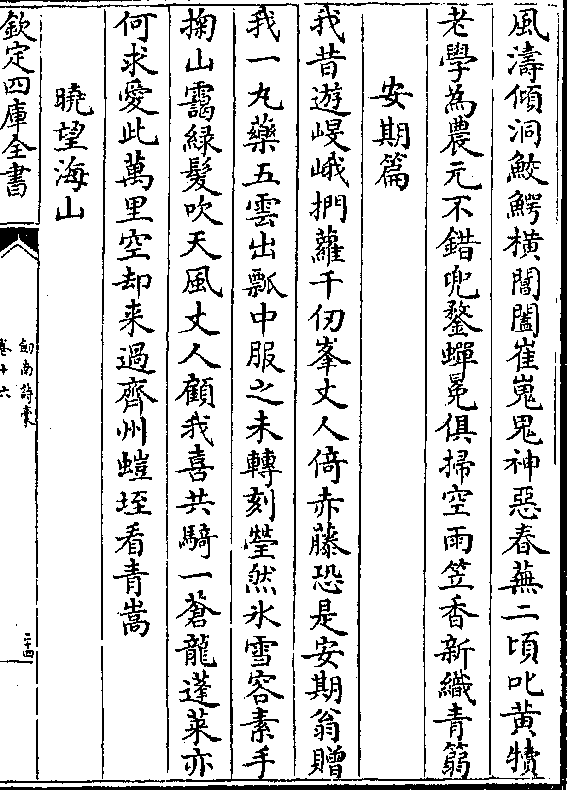 風濤傾洞鮫鰐橫閶闔崔嵬鬼神惡春蕪二頃叱黄犢
老學為農元不錯兜鍪蟬冕俱掃空雨笠香新織青篛
安期篇
我昔遊峴峨捫蘿千仞峯丈人倚赤藤恐是安期翁贈
我一丸藥五雲出瓢中服之未轉刻瑩然氷雪容素手
掬山靄緑髮吹天風丈人顧我喜共騎一蒼龍蓬萊亦
何求愛此萬里空却来過齊州螘垤看青嵩
曉望海山
欽定四庫全書
劍南詩稾
卷十六
二十四